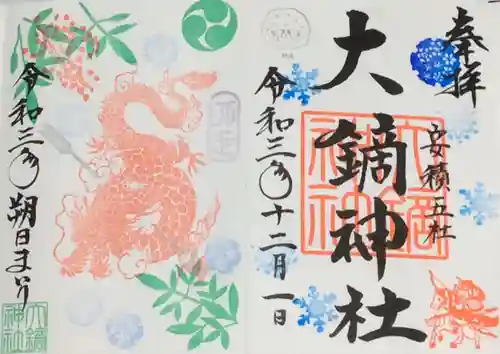 奉拝
大鏑神社
安積五社
令和三年十二月一日
令和三年朔日まいり
大鏑神社
大鏑神社